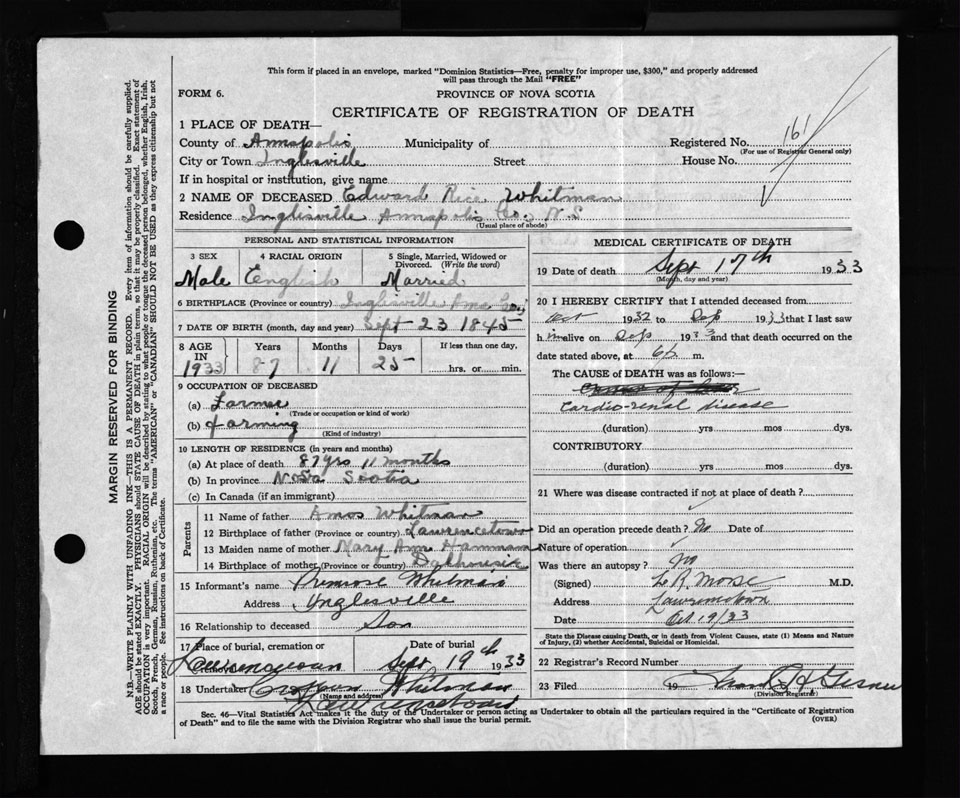 This form if placed in an envelope, marked "Dominion Statistics—Free, penalty for improper use, $300," and properly addressed
will pass through the Mail "FREE"
FORM 6.
PROVINCE OF NOVA SCOTIA
CERTIFICATE OF REGISTRATION OF DEATH
1 PLACE OF DEATH—
County of Annapolis Municipality of Registered No. 161
(For use of Registrar General only)
City or Town Inglisville Street House No.
If in hospital or institution, give name
2 NAME OF DECEASED Edward Rice Whitman
Residence Inglisville Annapolis Co, N.S
(Usual place of abode)
PERSONAL AND STATISTICAL INFORMATION
3 SEX
Male
4 RACIAL ORIGIN
English
5 Single, Married, Widowed or
Divorced. (Write the word)
Married
6 BIRTHPLACE (Province or country) Inglisville Anna
7 DATE OF BIRTH (month, day and year) Sept 23 1845
8 AGE
IN
1933
Years
87
Months
11
Days
25
If less than one day,
hrs. or min.
9 OCCUPATION OF DECEASED
(a) Farmer
(Trade or occupation or kind of work)
(b) farming
(Kind of industry)
10 LENGTH OF RESIDENCE (in years and months)
(a) At place of death 87 yrs 11 months
(b) In province Nova Scotia
(c) In Canada (if an immigrant)
Parents
11 Name of father Amos Whitman
12 Birthplace of father (Province or country) Lawrencetown
13 Maiden name of mother Mary Ann
14 Birthplace of mother (Province or country) Dalhousie
15 Informant's name Primrose Whitman
Address Inglesville
16 Relationship to deceased Son
17 Place of burial, cremation or
Lawrencetown
Date of burial
Sept 19th 1933
18 Undertaker Whitman
(Name and address)
Lawrencetown
MEDICAL CERTIFICATE OF DEATH
19 Date of death Sept 17th 1933
(Month, day and year)
20 I HEREBY CERTIFY that I attended deceased from
1932 to Sep 1933 that I last saw
h im alive on Sep 1933 and that death occurred on the
date stated above, at m.
The CAUSE of DEATH was as follows:—
Cardio-renal disease
(duration) yrs mos. dys.
CONTRIBUTORY
(duration) yrs mos. dys.
21 Where was disease contracted if not at place of death?
Did an operation precede death? No Date of
Nature of operation
Was there an autopsy? No
(Signed) L R Morse M.D.
Address Lawrencetown
Date Oct 19/33
State the Disease causing Death, or in death from Violent Causes, state (1) Means and Nature
of Injury, (2) whether Accidental, Suicidal or Homicidal.
22 Registrar's Record Number
23 Filed 19
Division Registrar
Sec. 46—Vital Statistics Act makes it the duty of the Undertaker or person acting as Undertaker to obtain all the particulars required in the "Certificate of Registration
of Death" and to file the same with the Division Registrar who shall issue the burial permit.
(OVER)
MARGIN RESERVED FOR BINDING
N.B. WRITE PLAINLY WITH UNFADING INK—THIS IS A PERMANENT RECORD. Every item of information should be carefully supplied.
AGE should be stated EXACTLY. PHYSICIANS should STATE CAUSE OF DEATH in plain terms, so that it may be properly classified. Exact statement of
OCCUPATION is very important. RACIAL ORIGIN will be described by stating to what people or tongue the deceased person belonged, whether English, Irish,
Scotch, French, German, Russian, Ruthenian, etc. The terms "AMERICAN" or "CANADIAN" SHOULD NOT BE USED as they express citizenship but not
a race or people. See instructions on back of Certificate.